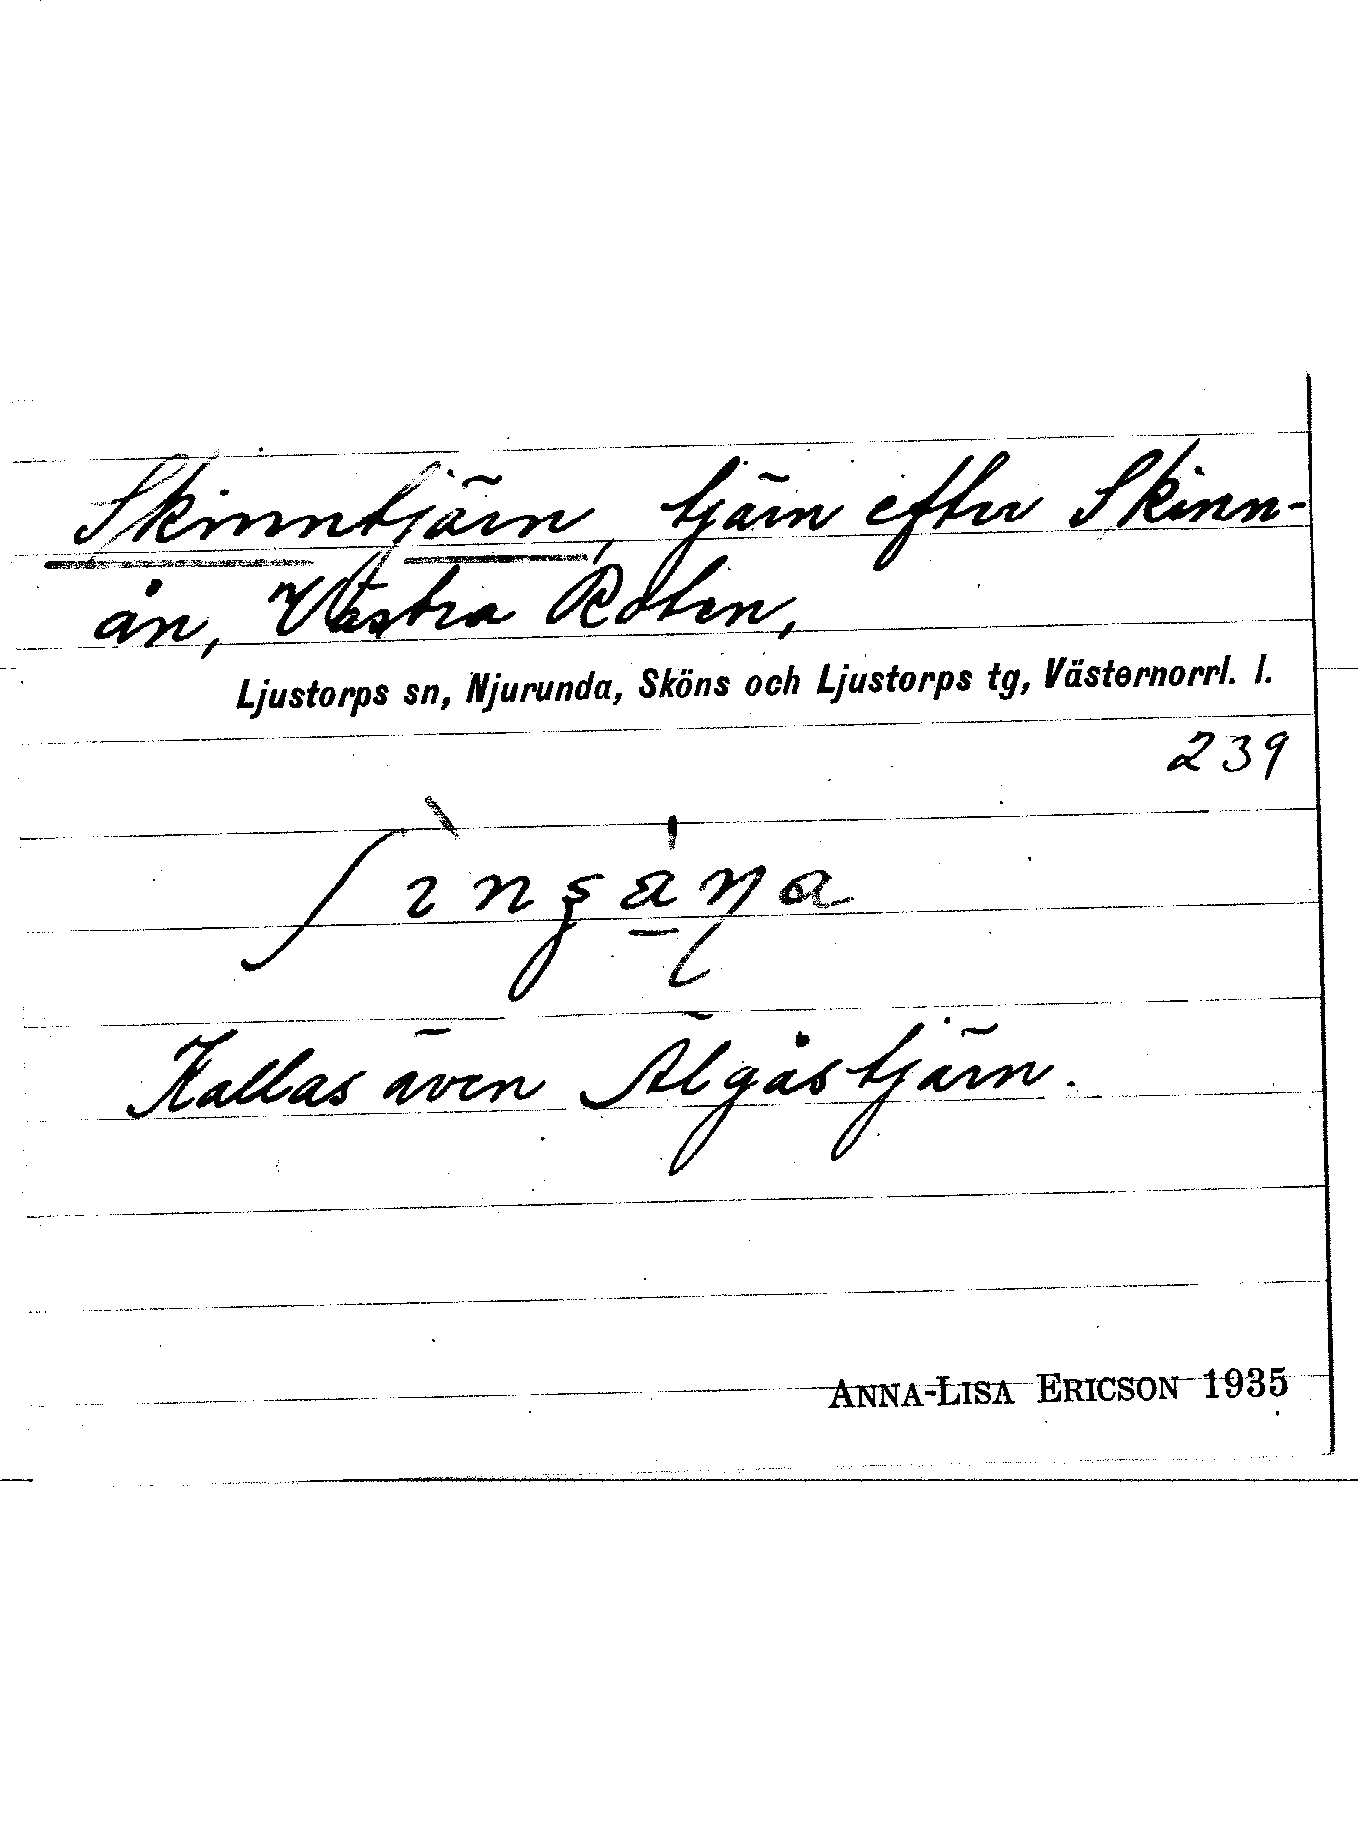 Skinntjärn, tjärn efter Skinn-
ån, Västra Roten,
Ljustorps sn, Njurunda, Sköns och Ljustorps tg, Västernorrl. l.
239
Kallas även Älgåstjärn.
ANNA-LISA ERICSON 1935